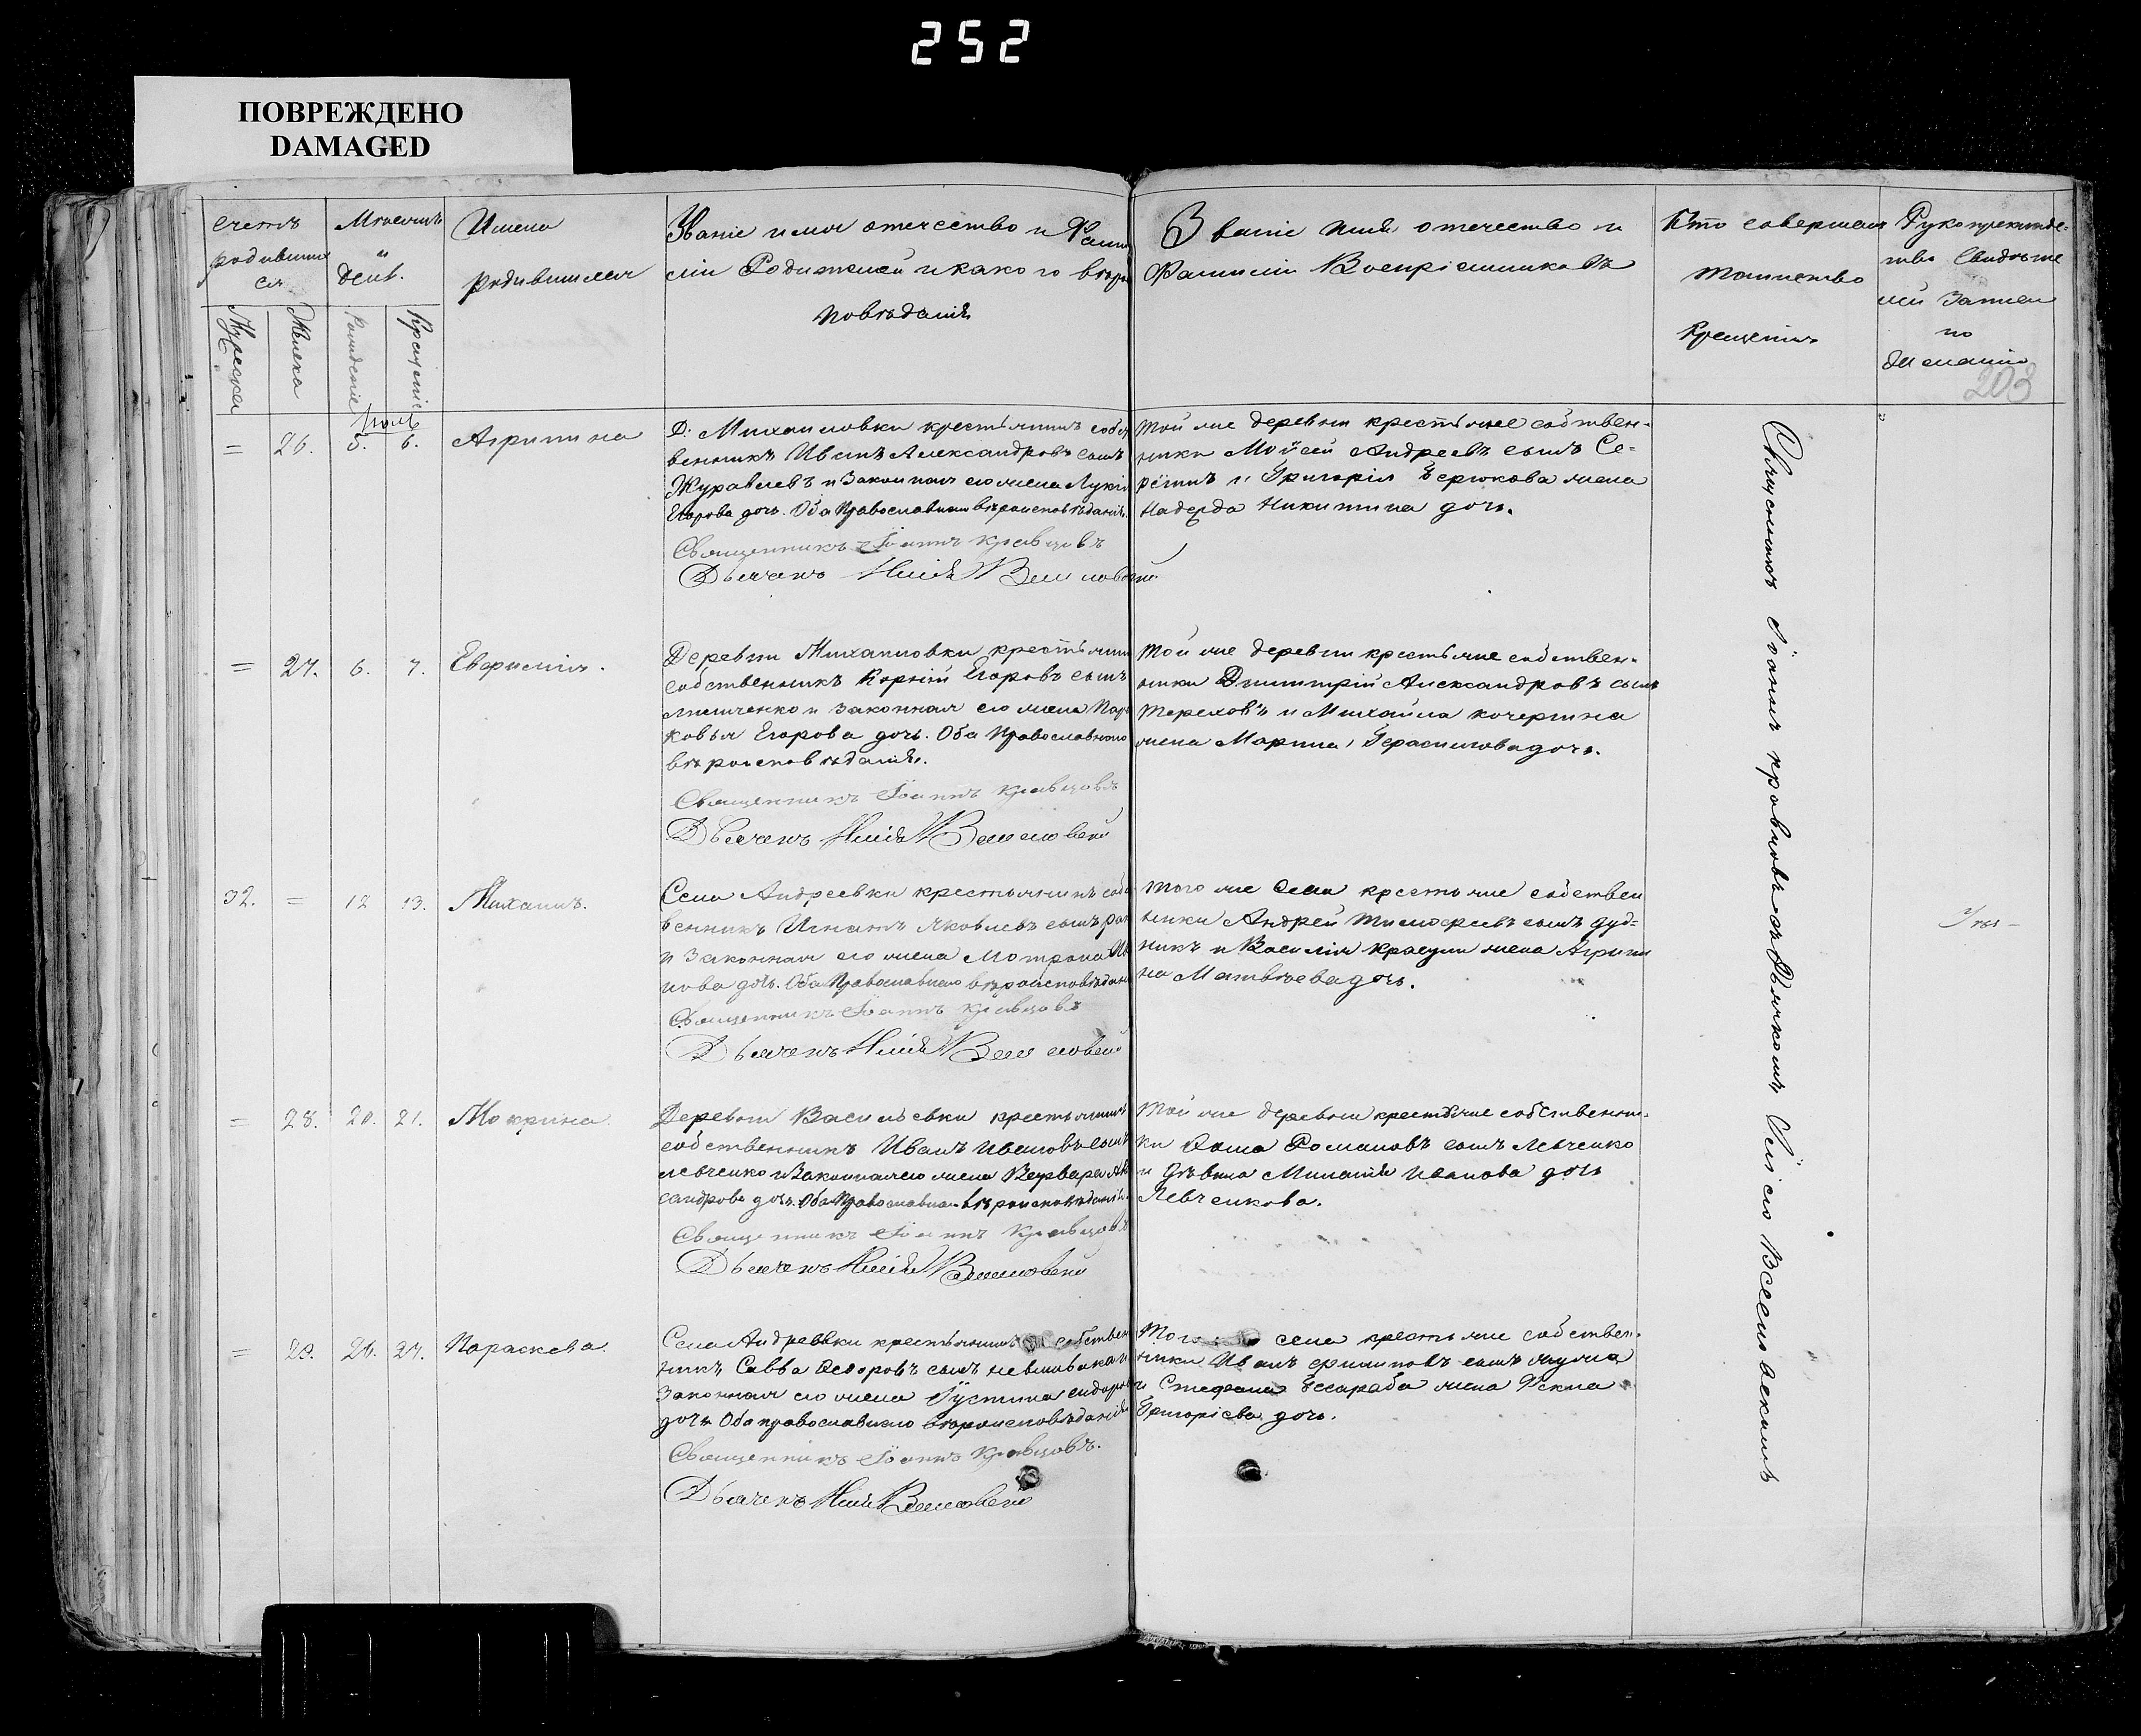 252
ПОВРЕЖДЕНО
DAMAGED
Счетъ
родивших
ся
Мѣсяцъ
и
День.
Имена
родившихся
Званіе имя отечество и Фами
ліи Родителей и какого вѣро
повѣданія
Мужеска
Женска
Рожденіе
Крещеніе
Званіе имя отечество и
Фамиліи Воспріемниковъ
Кто совершал
таинство
Крещенія
Рукоприкладс-
тво Свидѣте
лей Записи
по
желанію
203
= 26. 5. 6. Агрипина
Д. Михаиловки крестьянинъ собст
венникъ Иванъ Александровъ сынъ
Журавлевъ и Законная его жена Лукія
Егорова дочь. Оба Православнаго вѣроисповѣданія.
Священникъ Іоаннъ Кравцовъ
Дьячекъ
Той же деревни крестьяне собствен-
ники Мойсей Андреевъ сынъ Се-
рёгинъ и Григорія Берюкова жена
Надежда Никитина дочь.
= 27. 6. 7. Евфимія.
Деревни Михаиловки крестьянин
собственникъ Корній Егоровъ сынъ
и законная его жена Пара
ковья Егорова дочь. Оба Православнаго
вѣроисповѣданія.
Священникъ Іоаннъ Кравцовъ
Дьячекъ
Той же деревни крестьяне собствен-
ники Димитрій Александровъ сынъ
Тереховъ и Михаила Кочергина
жена Марина Герасимова дочь.
32. = 12 13. Михаилъ.
Села Андреевки крестьянинъ собс
венникъ Игнатъ Яковлевъ сынъ
и Законная его жена Мотрона
нова дочь. Оба Православнаго вѣроисповѣдан
Священникъ Іоаннъ Кравцовъ
Дьячекъ
Того же Села крестьяне собствен
ники Андрей Тимофеевъ сынъ Дуд-
никъ и Василія жена Агрипи
на Матвѣева дочь.
= 28. 20. 21. Мокрина.
Деревни Васильевки крестьянинъ
собственникъ Иванъ Ивановъ сынъ
Левченко и Законная его жена Варвара Алек
сандрова дочь. Оба Православнаго вѣроисповѣданія.
Священникъ Іоаннъ Кравцовъ
Дьячекъ
Той же деревни крестьяне собственни-
ки Фома Романовъ сынъ Левченко
и дѣвица Миланія Иванова дочь
Левченкова.
= 29. 26. 27. Параскева.
Села Андреевки крестьянинъ собствен
никъ Савва Федоровъ сынъ и
Законная его жена Іустина
дочь Оба православнаго вѣроисповѣданія
Священникъ Іоаннъ Кравцовъ.
Дьячекъ
Того села крестьяне собствен-
ники Иванъ Филиповъ сынъ
и Стефана Бесараба жена Фекла
Григоріева дочь.
Священникъ Іоаннъ Кравцовъ съ Дьячкомъ